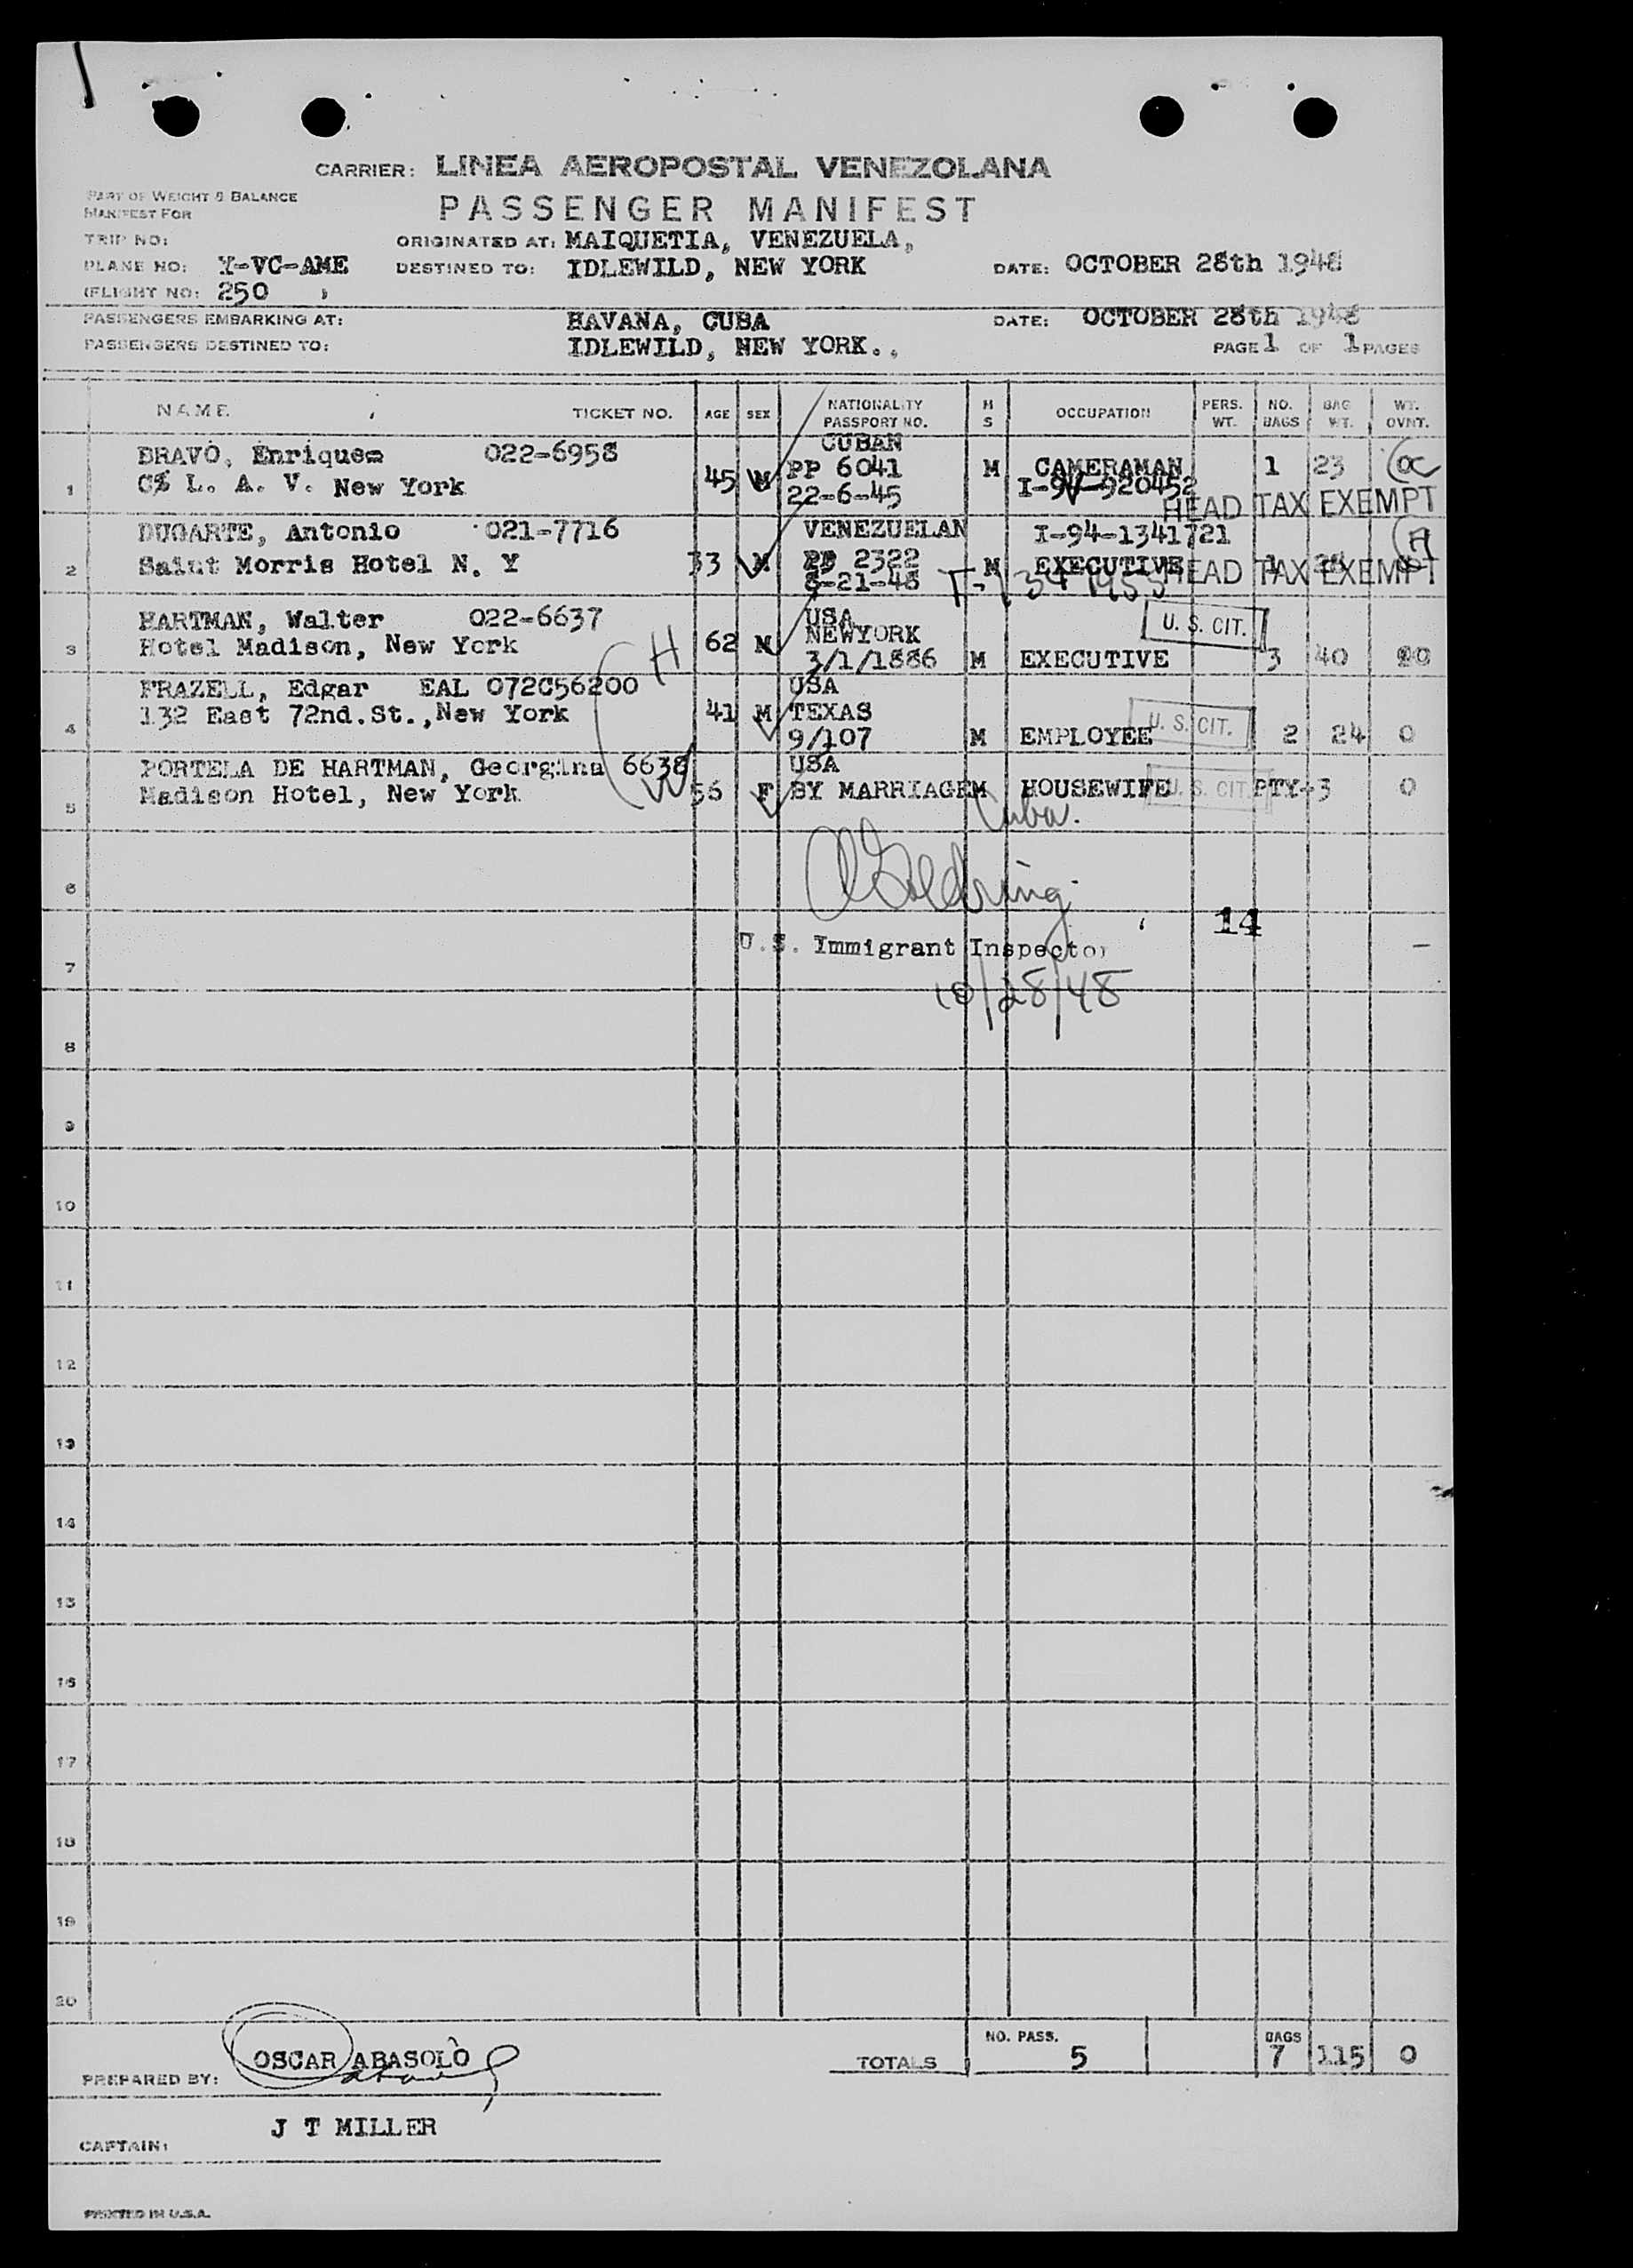 CARRIER: LINEA AEROPOSTAL VENEZOLANA
PART OF WEIGHT & BALANCE
MANIFEST FOR
PASSENGER MANIFEST
TRIP NO:
ORIGINATED AT: MAIQUETIA, VENEZUELA,
PLANE NO: Y-VC-AME DESTINED TO: IDLEWILD, NEW YORK DATE: OCTOBER 28th 1948
(FLIGHT NO: 250
PASSENGERS EMBARKING AT: HAVANA, CUBA DATE: OCTOBER 28th 1948
PASSENGERS DESTINED TO: IDLEWILD, NEW YORK.. PAGE 1 OF 1 PAGES
NAME TICKET NO. AGE SEX NATIONALITY PASSPORT NO. M S OCCUPATION PERS. WT. NO. BAGS BAG WT. WT. OVNT.
CUBAN
BRAVO, Enrique 022-6958
45 M PP 6041 M CAMERAMAN 1 23 OC
1 C% L. A. V. New York 22-6-45 I-94-920452
HEAD TAX EXEMPT
DUGARTE, Antonio 021-7716 VENEZUELAN I-94-1341721 H
2 Saint Morris Hotel N. Y 33 M PP 2322 M EXECUTIVE 1
8-21-48 HEAD TAX EXEMPT
HARTMAN, Walter 022-6637 USA U. S. CIT.
3 Hotel Madison, New York H 62 M NEWYORK
3/1/1886 M EXECUTIVE 3 40
FRAZELL, Edgar EAL 072C56200 USA
132 East 72nd.St.,New York 41 M TEXAS U. S. CIT.
4 9/107 M EMPLOYEE 2 24 0
PORTELA DE HARTMAN, Georgina 6638 USA
5 Madison Hotel, New York 56 F BY MARRIAGE M HOUSEWIFE U. S. CIT. PTY-3 0
Cuba.
6
Goldring
14
7 U.S. Immigrant Inspector
10/28/48
8
9
10
11
12
13
14
15
16
17
18
19
20
NO. PASS. BAGS
OSCAR ABASOLO TOTALS 5 7 115 0
PREPARED BY:
J T MILLER
CAPTAIN:
PRINTED IN U.S.A.